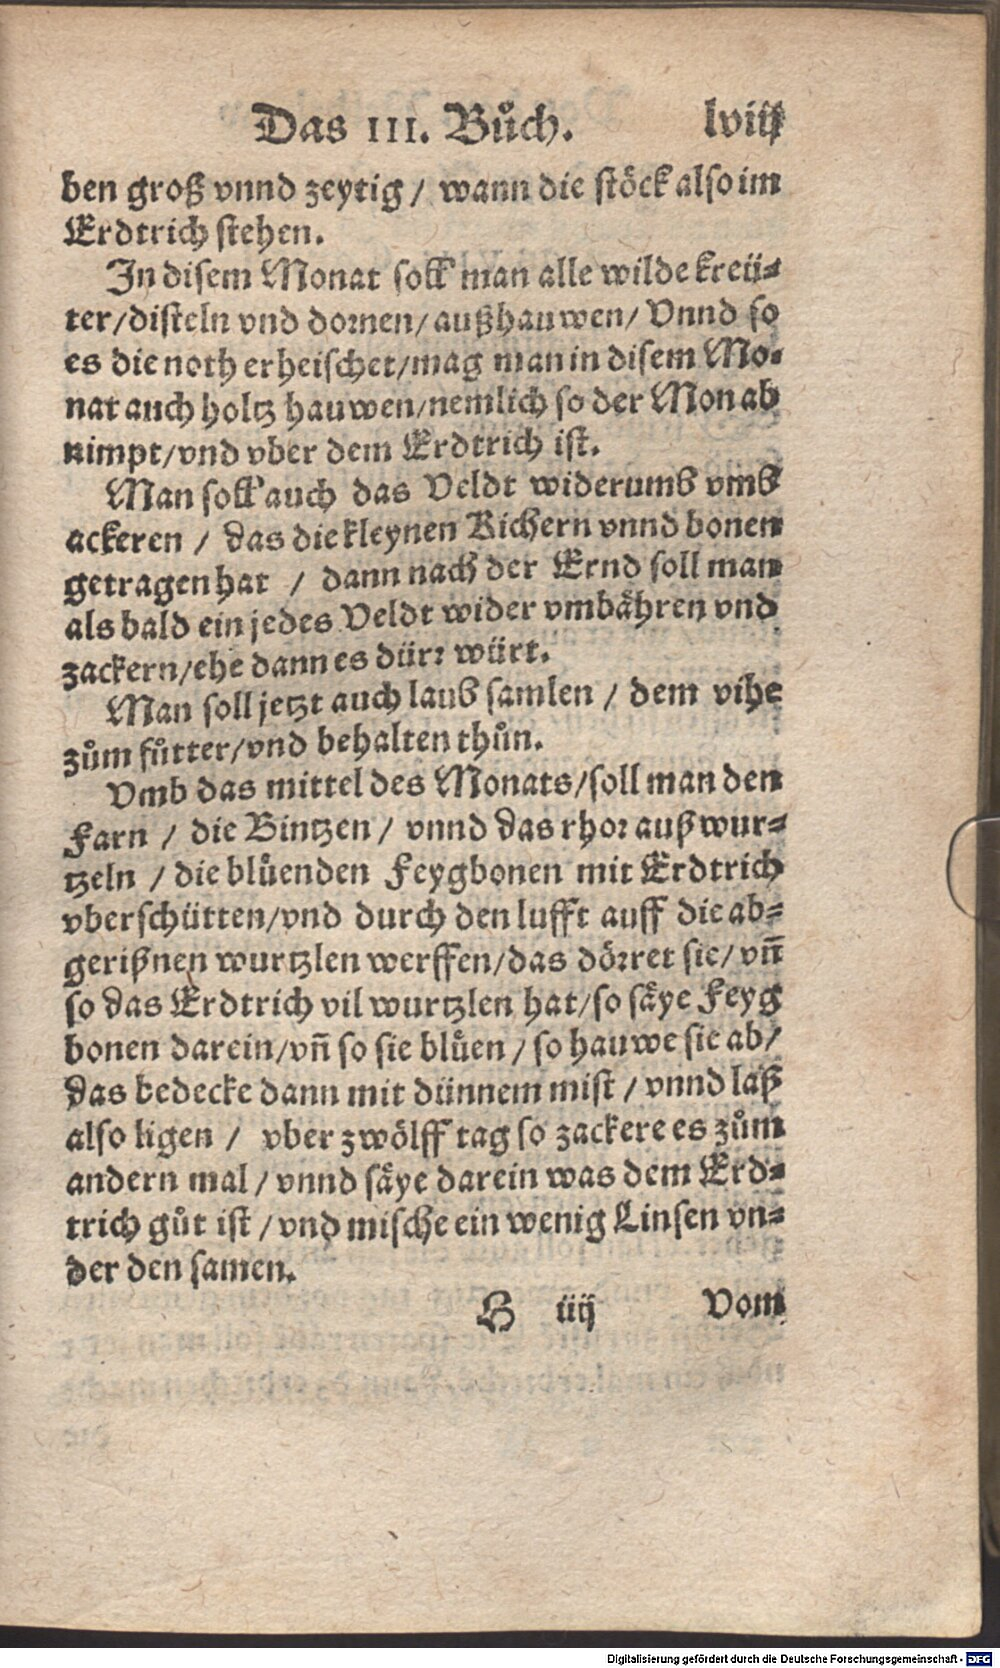 Das III. Bůch. lviij
ben groß vnnd zeytig / wann die stöck also im
Erdtrich stehen.
In disem Monat soll man alle wilde kreü-
ter/disteln vnd dornen/außhauwen/ Vnnd so
es die noth erheischet/mag man in disem Mo-
nat auch holtz hauwen/nemlich so der Mon ab
nimpt/vnd vber dem Erdtrich ist.
Man soll auch das Veldt widerumb vmb
ackeren / das die kleynen Kichern vnnd bonen
getragen hat / dann nach der Ernd soll man
als bald ein jedes Veldt wider vmbähren vnd
zackern/ehe dann es dürr würt.
Man soll jetzt auch laub samlen / dem vihe
zům fůtter/vnd behalten thůn.
Vmb das mittel des Monats/soll man den
Farn / die Bintzen / vnnd das rhor außwur-
tzeln / die blůenden Feygbonen mit Erdtrich
vberschütten/vnd durch den lufft auff die ab-
gerißnen wurtzlen werffen/das dörret sie/ vn̄
so das Erdtrich vil wurtzlen hat/so säye Feyg
bonen darein/vn̄ so sie blůen / so hauwe sie ab/
das bedecke dann mit dünnem mist / vnnd laß
also ligen / vber zwölff tag so zackere es zům
andern mal / vnnd säye darein was dem Erd-
trich gůt ist / vnd mische ein wenig Linsen vn-
der den samen.
H iij Vom
Digitalisierung gefördert durch die Deutsche Forschungsgemeinschaft - DFG